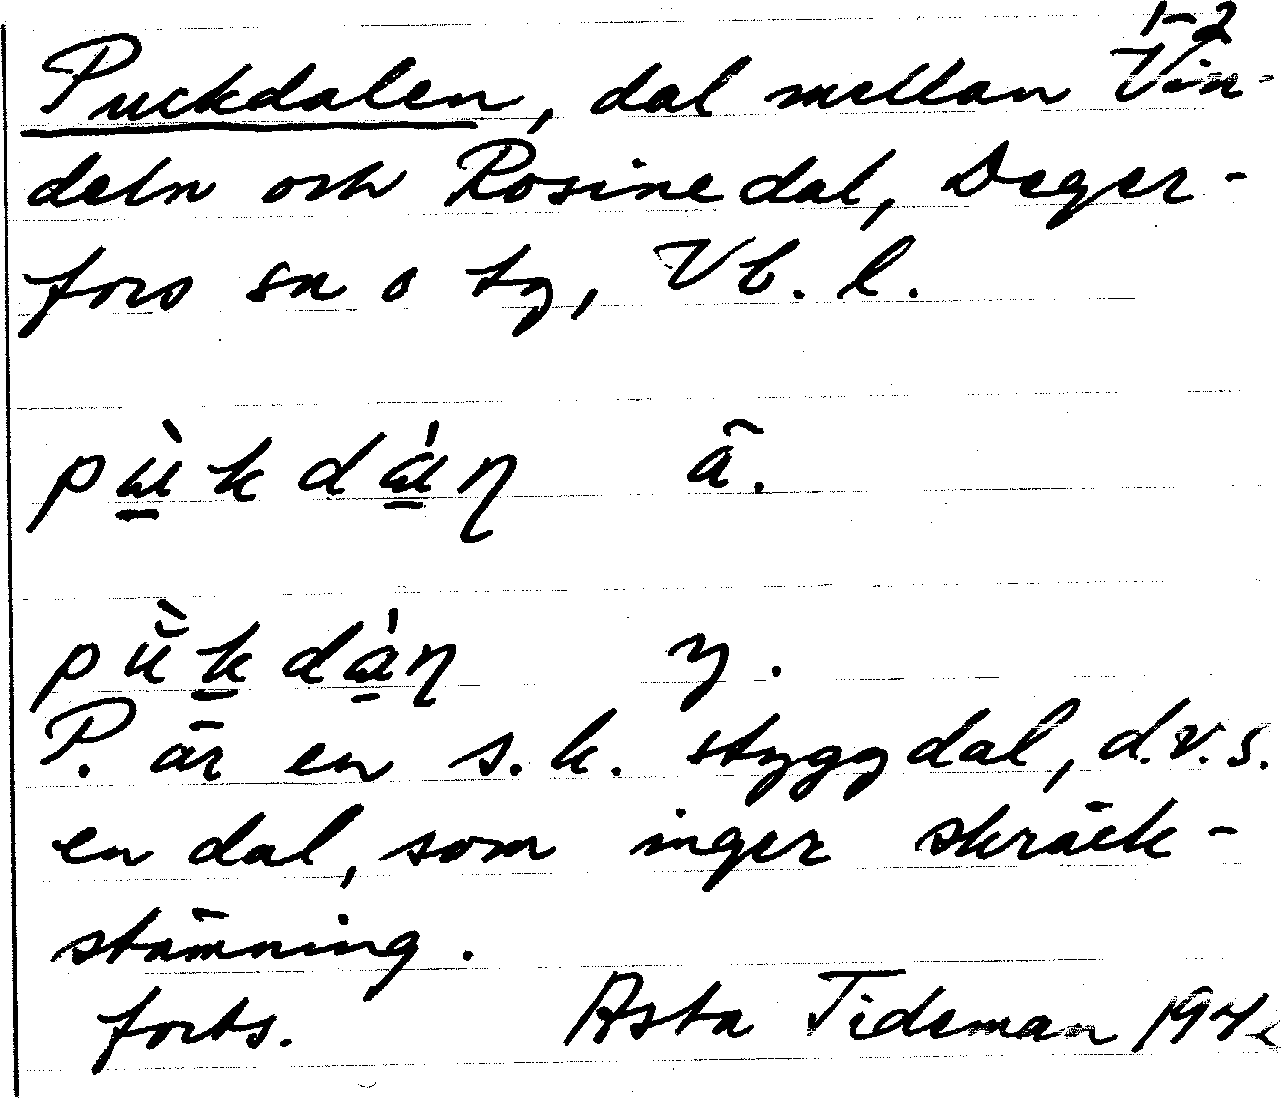 1-2
Puckdalen, dal mellan Vin-
deln och Rosinedal, Deger-
fors sn o tg, Vb. l.
ä.
y.
P. är en s.k. styggdal, d.v.s.
en dal, som inger skräck-
stämning.
forts. Asta Tideman